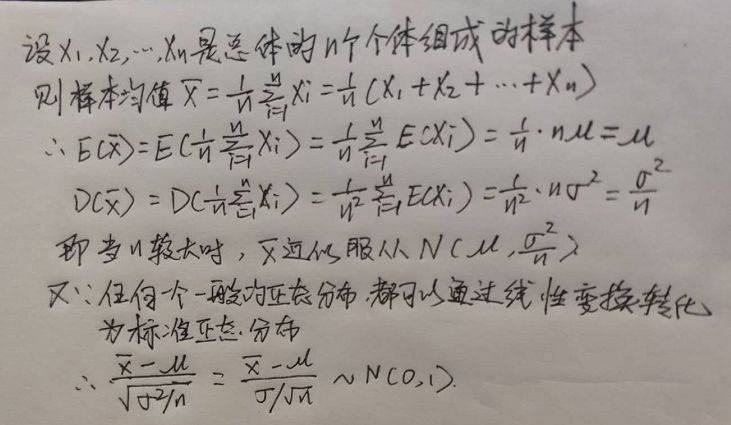 设X₁,X₂,…,Xn是总体的n个个体组成的样本
则样本均值 X̄ = 1/n ∑_{i=1}^{n} Xi = 1/n (X₁+X₂+…+Xn)
∴ E(X̄) = E(1/n ∑_{i=1}^{n} Xi) = 1/n ∑_{i=1}^{n} E(Xi) = 1/n · nμ = μ
D(X̄) = D(1/n ∑_{i=1}^{n} Xi) = 1/n² ∑_{i=1}^{n} E(Xi) = 1/n² · nσ² = σ²/n
即当n较大时, X̄近似服从 N(μ, σ²/n)
又∵任何一个一般的正态分布,都可以通过线性变换转化
为标准正态分布
∴ (X̄-μ)/√(σ²/n) = (X̄-μ)/(σ/√n) ~ N(0,1).